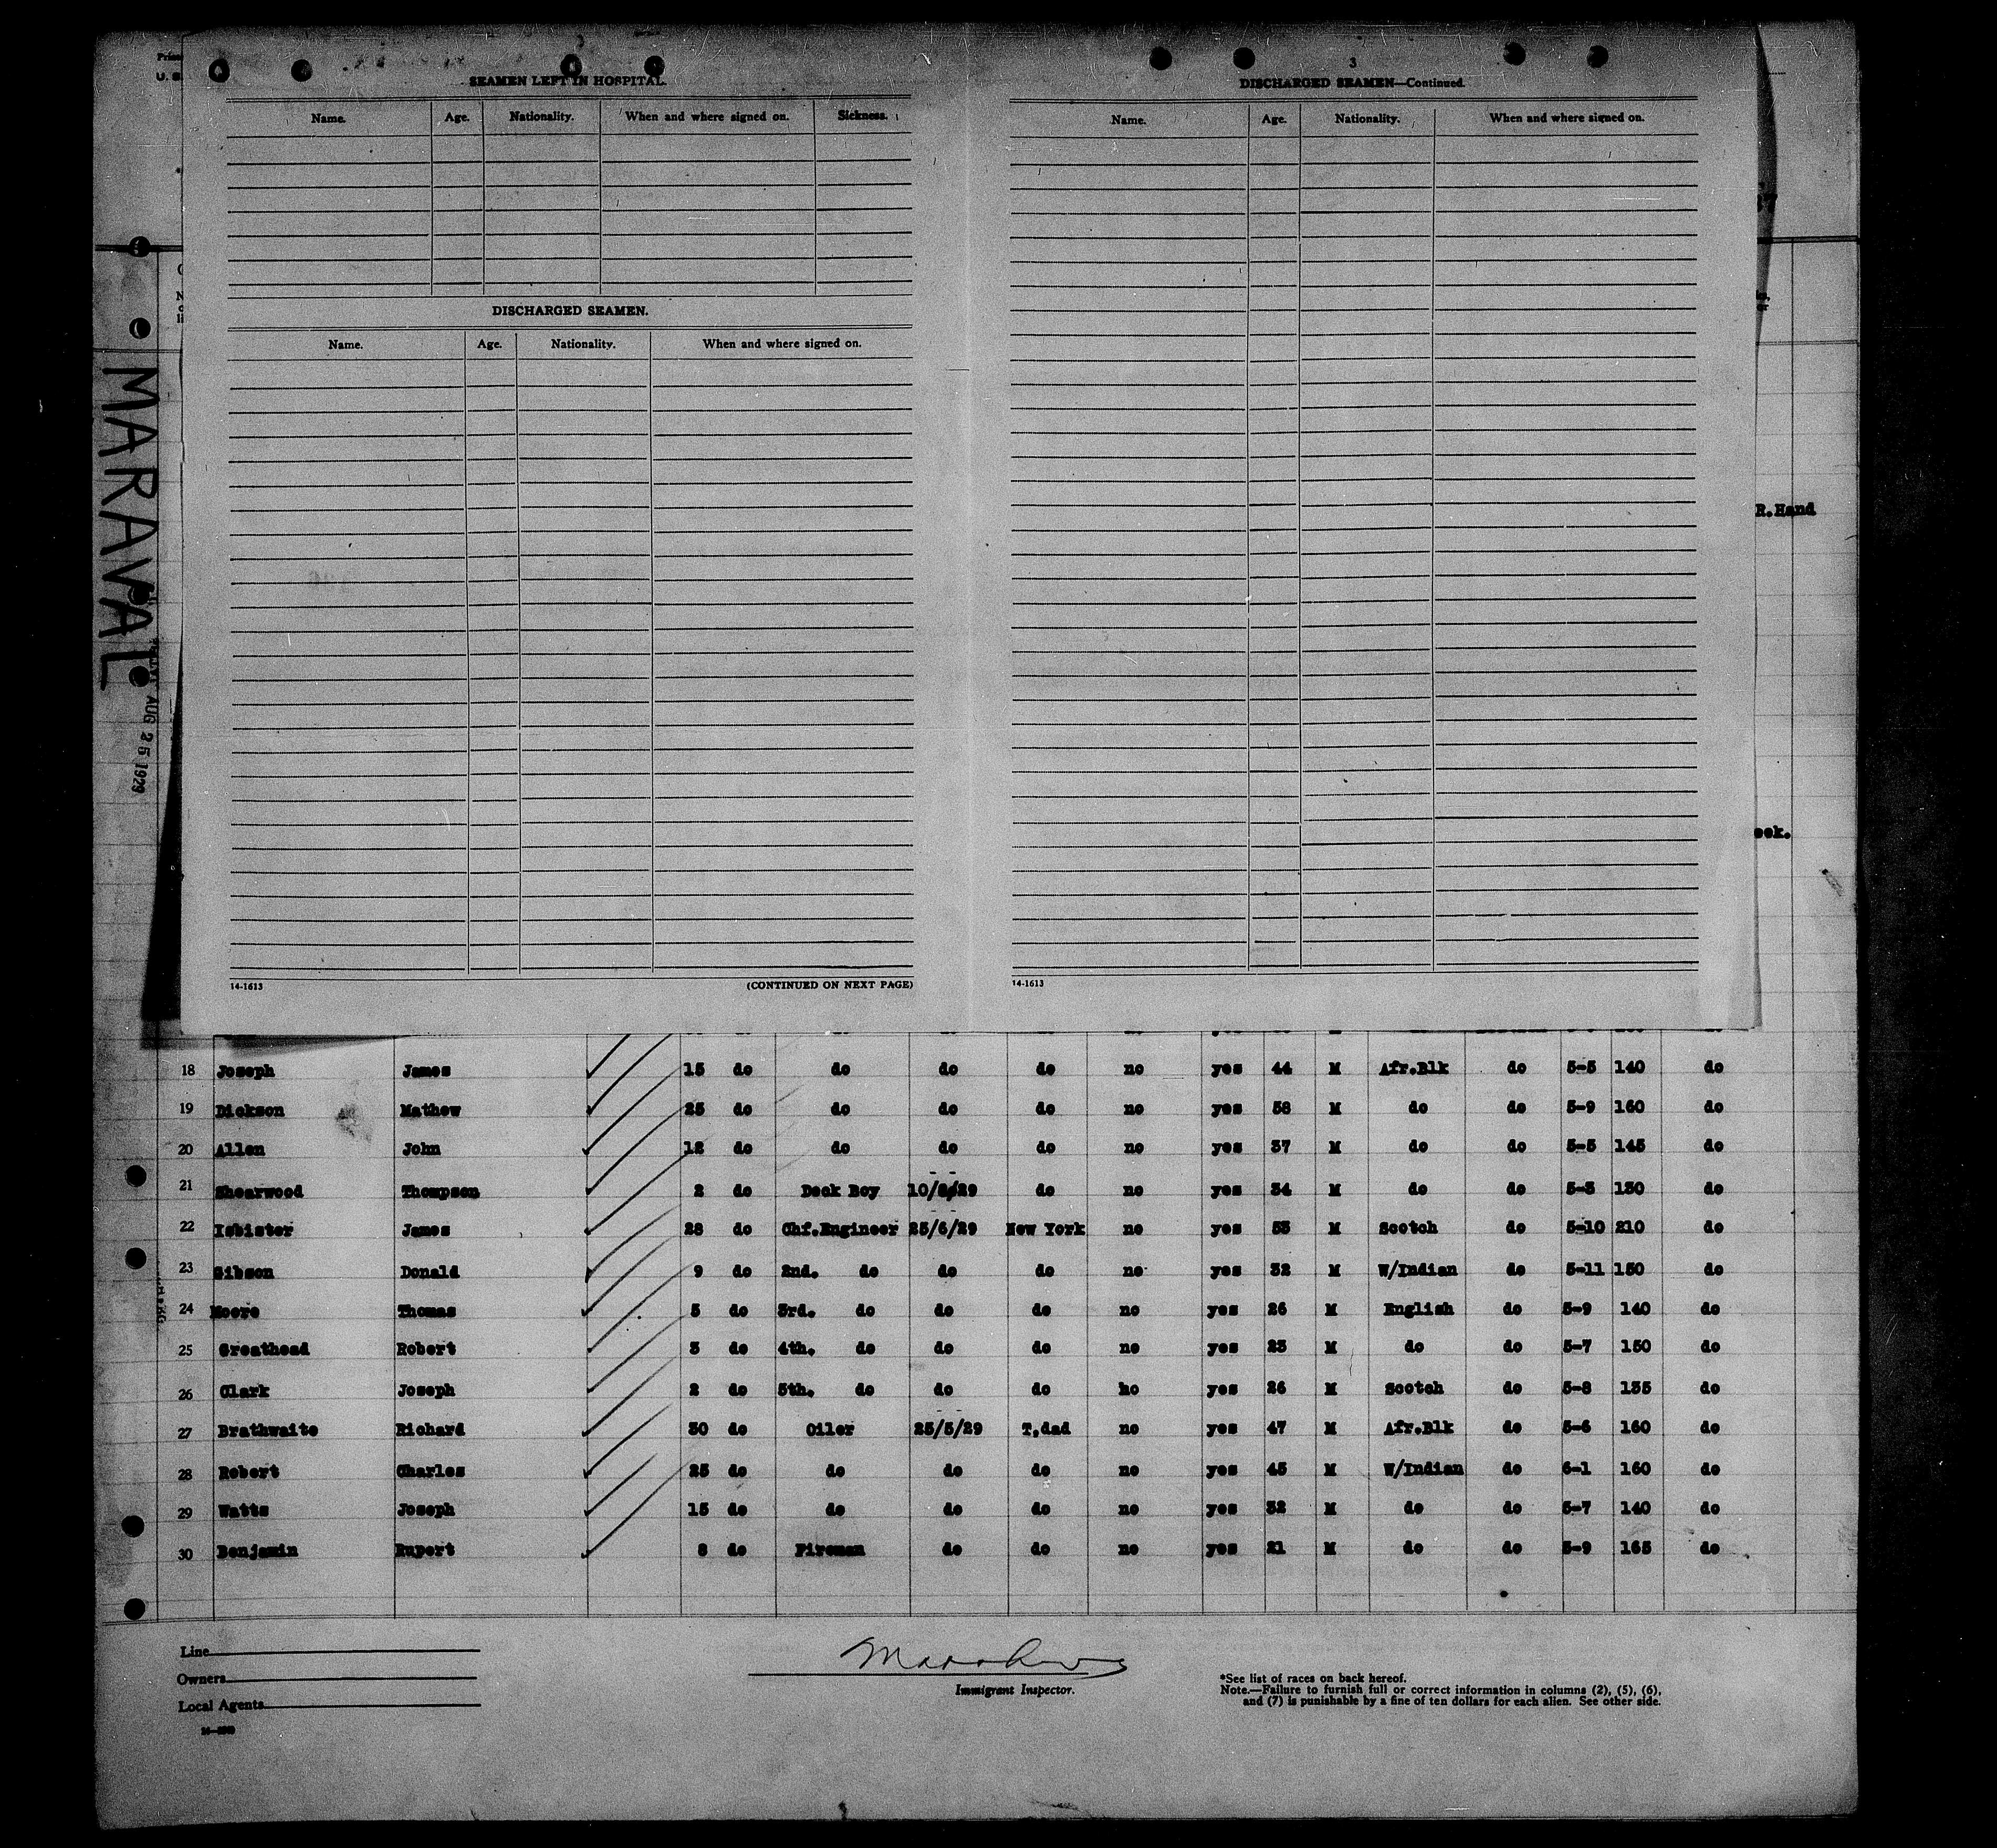 SEAMEN LEFT IN HOSPITAL.
Name. Age. Nationality. When and where signed on. Sickness.
DISCHARGED SEAMEN.
Name. Age. Nationality. When and where signed on.
14-1613 (CONTINUED ON NEXT PAGE)
3
DISCHARGED SEAMEN—Continued.
Name. Age. Nationality. When and where signed on.
14-1613
MARAVAL
AUG 25 1929
R.Hand
18 Joseph James 15 do do do do no yes 44 M Afr.Blk do 5-5 140 do
19 Dickson Mathew 25 do do do do no yes 58 M do do 5-9 160 do
20 Allen John 12 do do do do no yes 37 M do do 5-5 145 do
21 Shearwood Thompson 2 do Deck Boy do no yes 34 M do do 5-3 130 do
22 Isbister James 28 do Chf.Engineer 25/6/29 New York no yes 53 M Scotch do 5-10 210 do
23 Gibson Donald 9 do 2nd. do do do no yes 32 M W/Indian do 5-11 150 do
24 Moore Thomas 5 do 3rd. do do do no yes 26 M English do 5-9 140 do
25 Greathead Robert 3 do 4th. do do do no yes 23 M do do 5-7 150 do
26 Clark Joseph 2 do 5th. do do do no yes 26 M Scotch do 5-8 135 do
27 Brathwaite Richard 30 do Oiler 25/5/29 T,dad no yes 47 M Afr.Blk do 5-6 160 do
28 Robert Charles 25 do do do do no yes 45 M W/Indian do 6-1 160 do
29 Watts Joseph 15 do do do do no yes 32 M do do 5-7 140 do
30 Benjamin Rupert 8 do Fireman do do no yes 21 M do do 5-9 165 do
Line
Owners
Local Agents
Immigrant Inspector.
*See list of races on back hereof.
Note.—Failure to furnish full or correct information in columns (2), (5), (6),
and (7) is punishable by a fine of ten dollars for each alien. See other side.